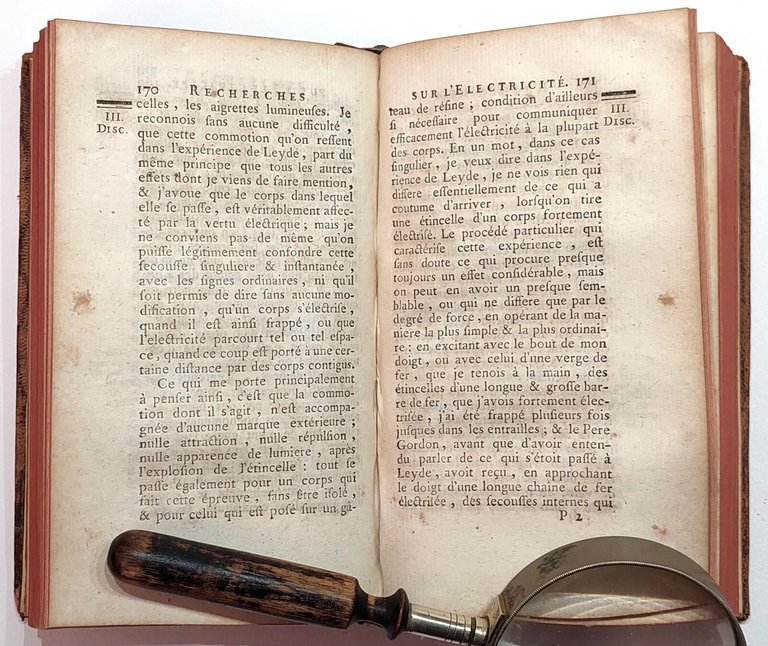 170 RECHERCHES
III.
Disc.
celles, les aigrettes lumineuses. Je
reconnois sans aucune difficulté,
que cette commotion qu'on ressent
dans l'expérience de Leyde, part du
même principe que tous les autres
effets dont je viens de faire mention,
& j'avoue que le corps dans lequel
elle se passe, est véritablement affec-
té par la vertu électrique; mais je
ne conviens pas de même qu'on
puisse légitimement confondre cette
secousse singuliere & instantanée,
avec les signes ordinaires, ni qu'il
soit permis de dire sans aucune mo-
dification, qu'un corps s'électrise,
quand il est ainsi frappé, ou que
l'electricité parcourt tel ou tel espa-
ce, quand ce coup est porté à une cer-
taine distance par des corps contigus.
Ce qui me porte principalement
à penser ainsi, c'est que la commo-
tion dont il s'agit, n'est accompa-
gnée d'aucune marque extérieure;
nulle attraction, nulle répulsion,
nulle apparence de lumiere, après
l'explosion de l'étincelle: tout se
passe également pour un corps qui
fait cette épreuve, sans être isolé,
& pour celui qui est posé sur un gâ-
SUR L'ELECTRICITÉ. 171
III.
Disc.
teau de résine; condition d'ailleurs
si nécessaire pour communiquer
efficacement l'électricité à la plupart
des corps. En un mot, dans ce cas
singulier, je veux dire dans l'expé-
rience de Leyde, je ne vois rien qui
differe essentiellement de ce qui a
coutume d'arriver, lorsqu'on tire
une étincelle d'un corps fortement
électrisé. Le procédé particulier qui
caractérise cette expérience, est
sans doute ce qui procure presque
toujours un effet considérable, mais
on peut en avoir un presque sem-
blable, ou qui ne differe que par le
degré de force, en opérant de la ma-
niere la plus simple & la plus ordinai-
re: en excitant avec le bout de mon
doigt, ou avec celui d'une verge de
fer, que je tenois à la main, des
étincelles d'une longue & grosse bar-
re de fer, que j'avois fortement élec-
trisée, j'ai été frappé plusieurs fois
jusques dans les entrailles; & le Pere
Gordon, avant que d'avoir enten-
du parler de ce qui s'étoit passé à
Leyde, avoit reçu, en approchant
le doigt d'une longue chaine de fer
électrisée, des secousses internes qui
P 2